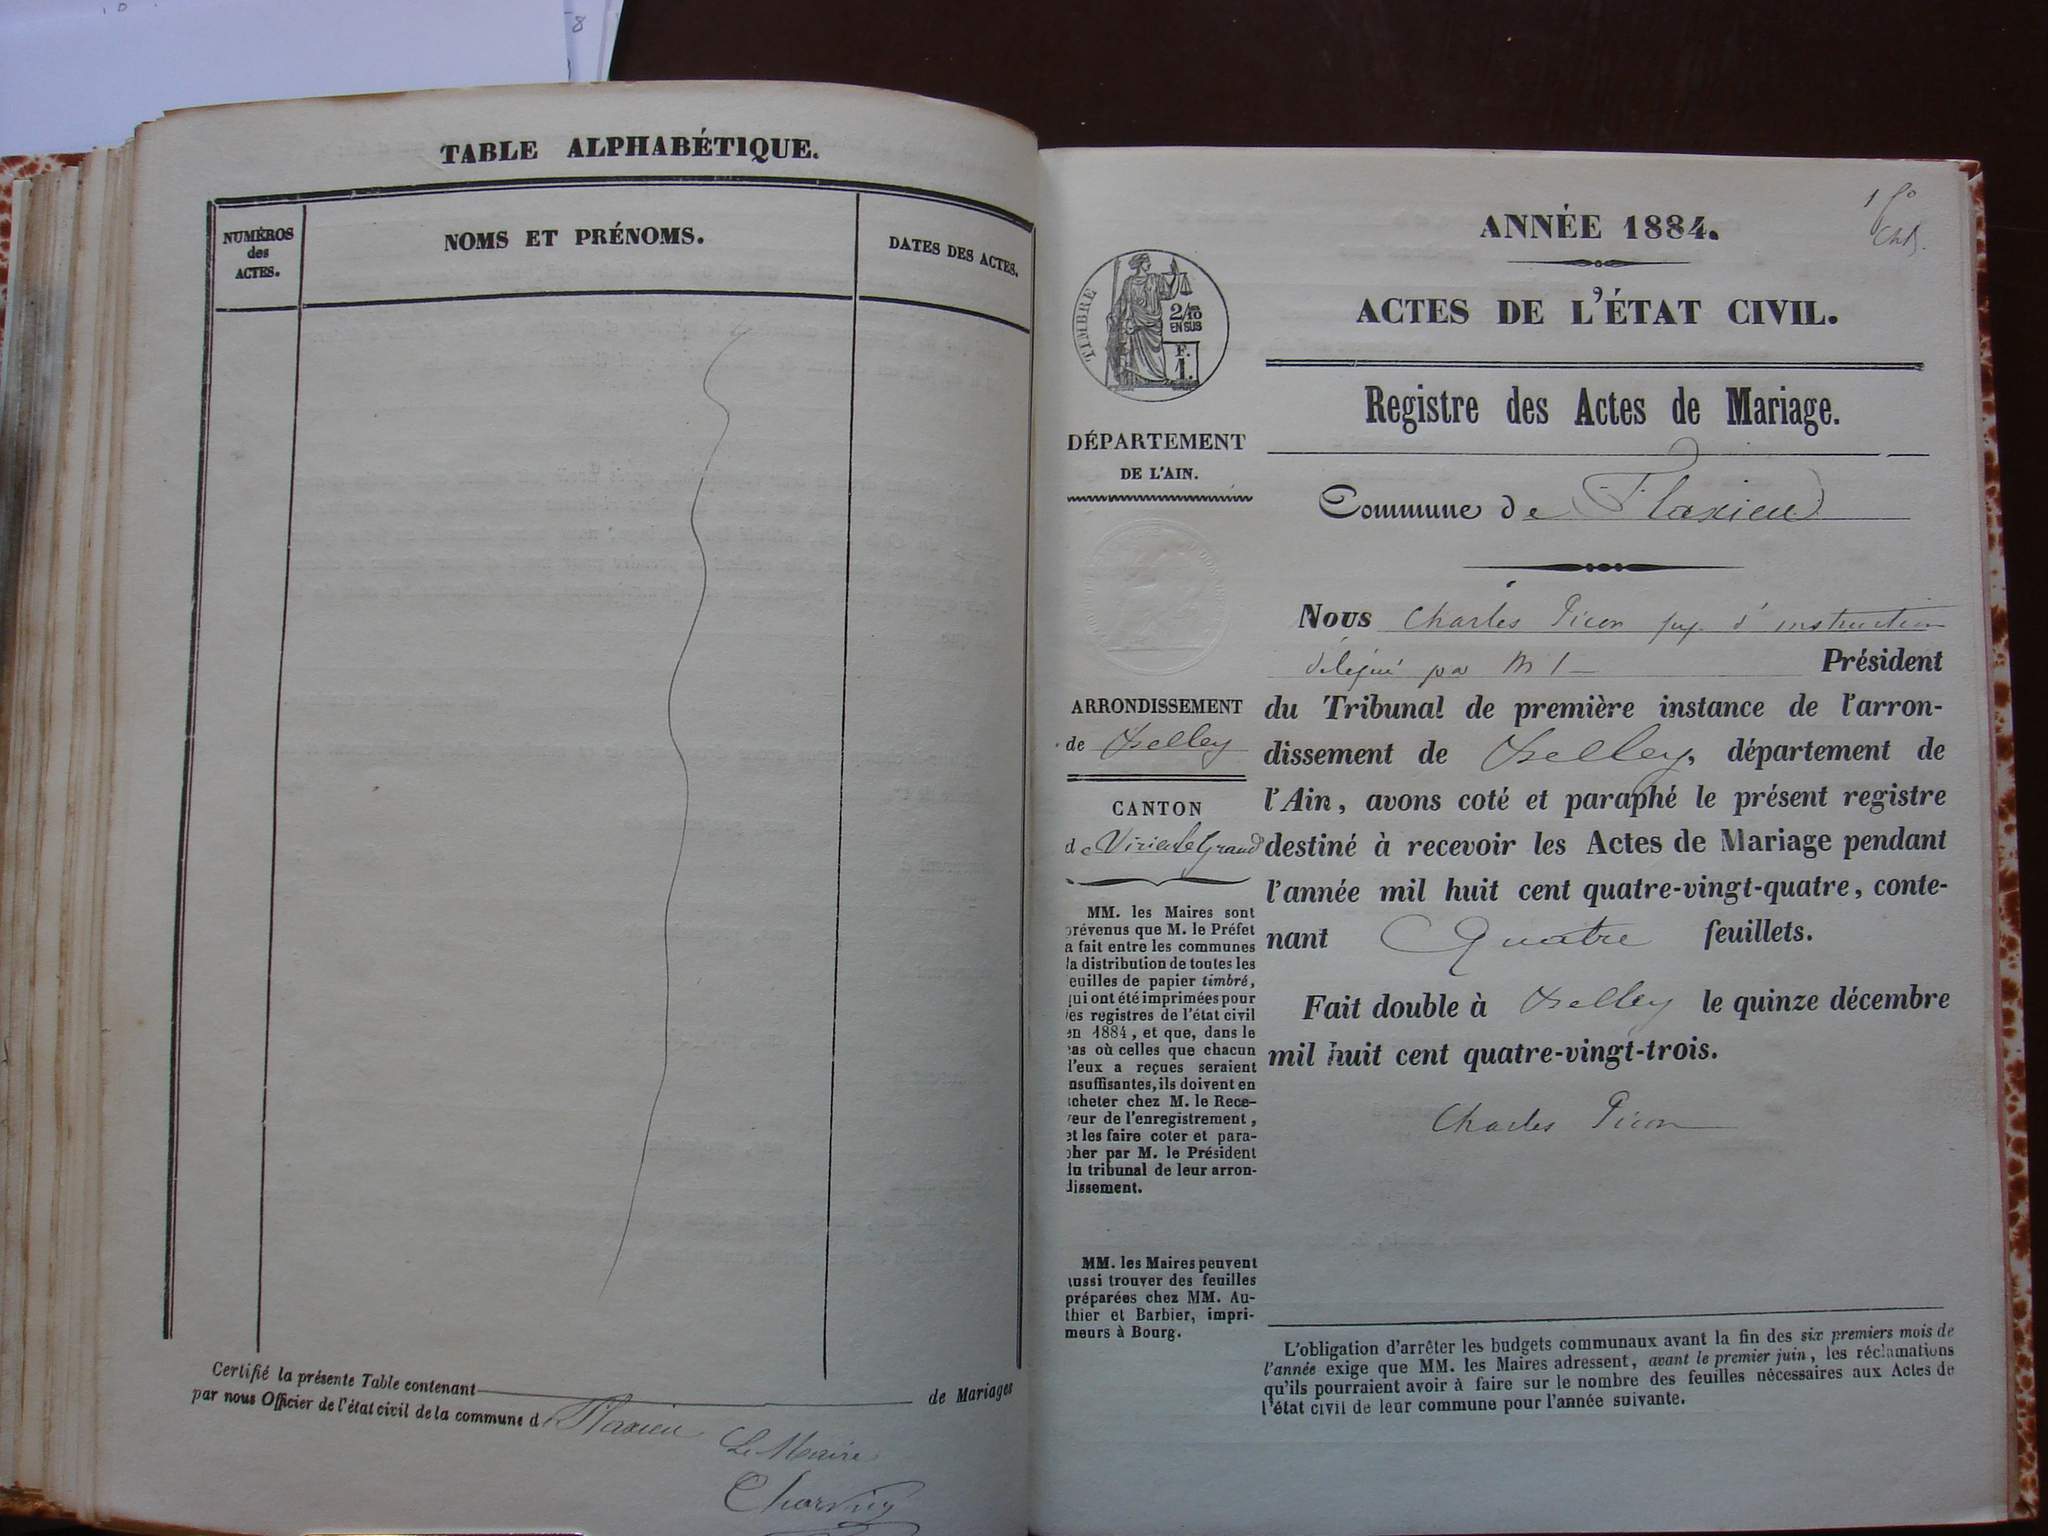 TABLE ALPHABÉTIQUE.
NUMÉROS
des
ACTES.
NOMS ET PRÉNOMS.
DATES DES ACTES.
Certifié la présente Table contenant de Mariages
par nous Officier de l'état civil de la commune de Flaxieu
Le Maire
ANNÉE 1884.
ACTES DE L'ÉTAT CIVIL.
TIMBRE
2/10
EN SUS
F.
1.
Registre des Actes de Mariage.
DÉPARTEMENT
DE L'AIN.
Commune de Flaxieu
Nous Charles Picon juge d'instruction
délégué par M l Président
ARRONDISSEMENT
de Belley
du Tribunal de première instance de l'arron-
dissement de Belley, département de
l'Ain, avons coté et paraphé le présent registre
destiné à recevoir les Actes de Mariage pendant
l'année mil huit cent quatre-vingt-quatre, conte-
nant Quatre feuillets.
Fait double à Belley le quinze décembre
mil huit cent quatre-vingt-trois.
Charles Picon
CANTON
de Virieu le Grand
MM. les Maires sont
prévenus que M. le Préfet
a fait entre les communes
la distribution de toutes les
euilles de papier timbré,
qui ont été imprimées pour
les registres de l'état civil
en 1884, et que, dans le
cas où celles que chacun
d'eux a reçues seraient
nsuffisantes, ils doivent en
acheter chez M. le Rece-
veur de l'enregistrement,
et les faire coter et para-
pher par M. le Président
du tribunal de leur arron-
dissement.
MM. les Maires peuvent
aussi trouver des feuilles
préparées chez MM. Au-
thier et Barbier, impri-
meurs à Bourg.
L'obligation d'arrêter les budgets communaux avant la fin des six premiers mois de
l'année exige que MM. les Maires adressent, avant le premier juin, les réclamations
qu'ils pourraient avoir à faire sur le nombre des feuilles nécessaires aux Actes de
l'état civil de leur commune pour l'année suivante.